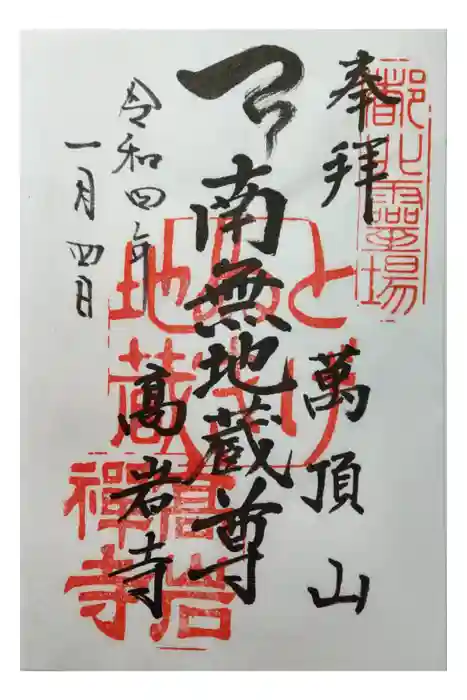 奉拝
萬頂山
南無地蔵尊
令和四年
一月四日
髙岩寺
とげぬき
地蔵
高岩
禪寺